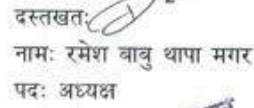 दस्तखतः
नामः रमेश बाबु थापा मगर
पदः अध्यक्ष